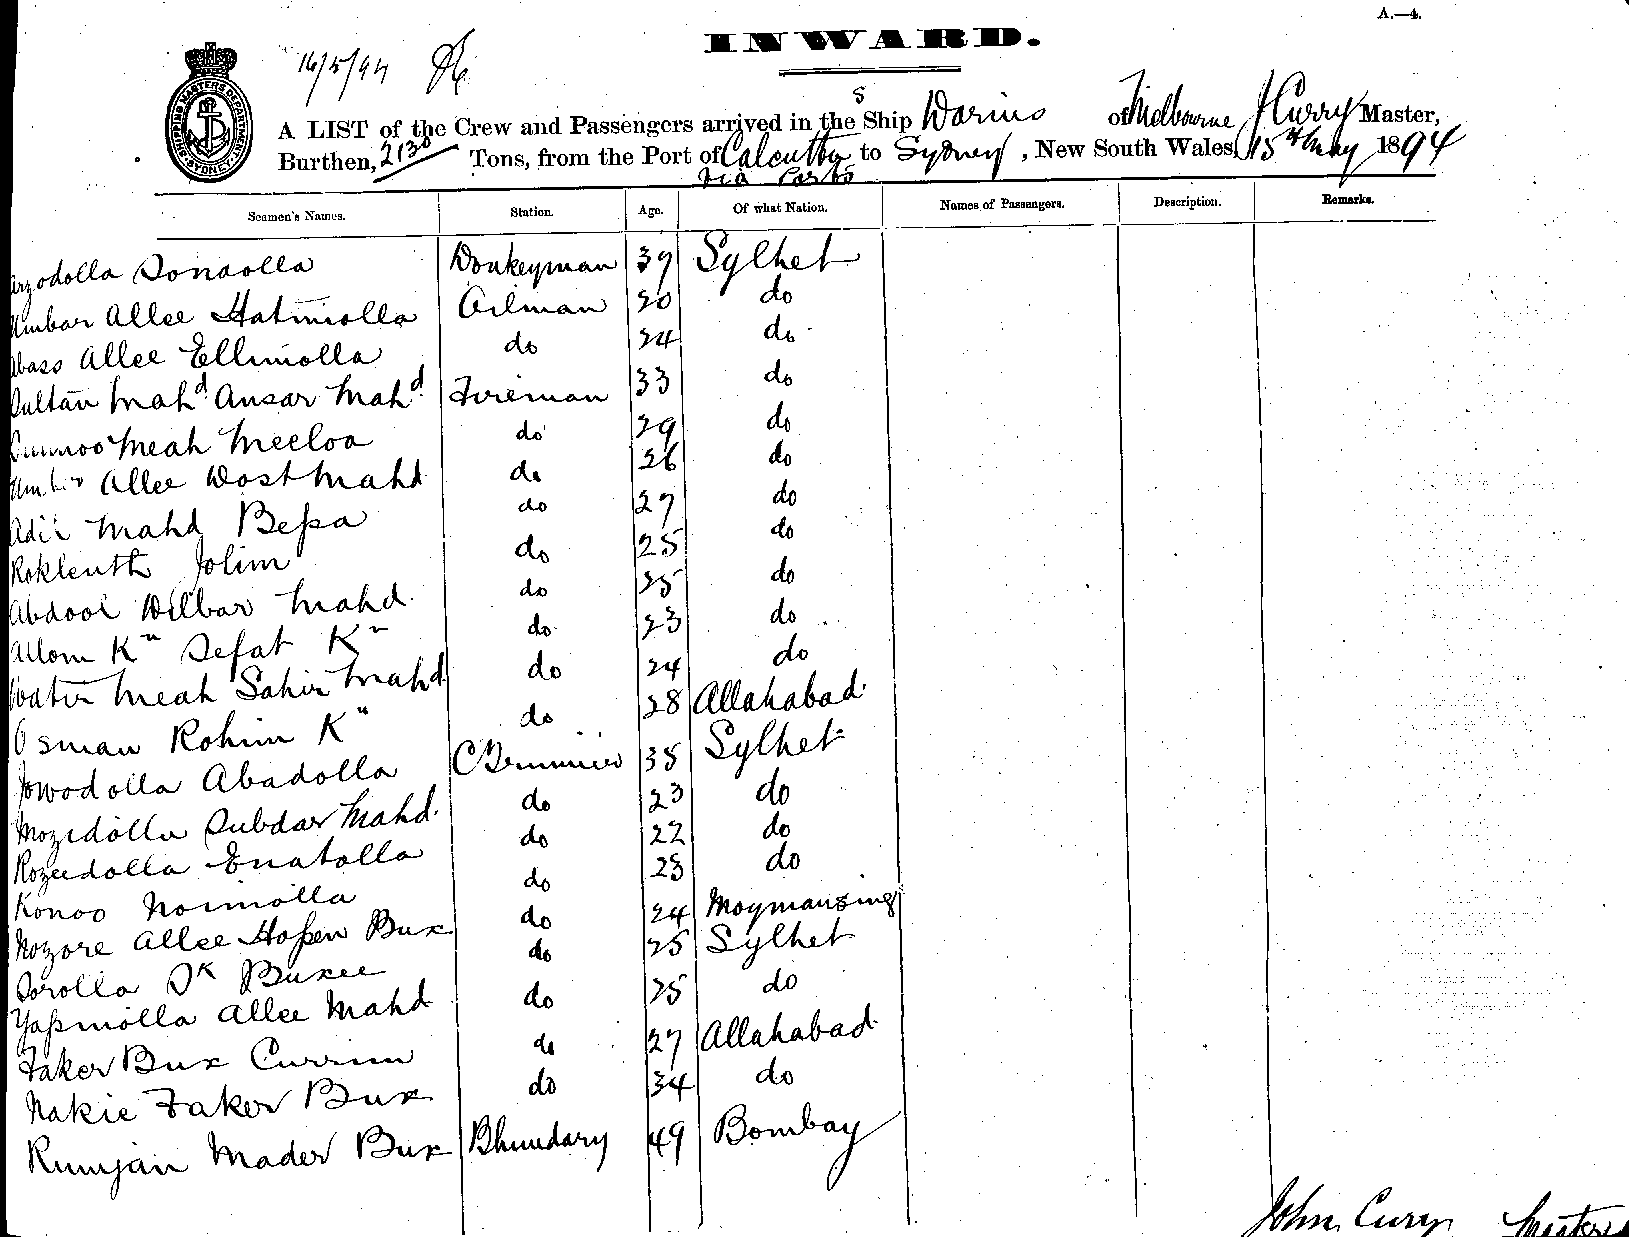 A.—4.
INWARD.
16/5/94
SHIPPING MASTERS DEPARTMENT SYDNEY
S
A LIST of the Crew and Passengers arrived in the Ship Darius of Melbourne J Curry Master,
Burthen, 2130 Tons, from the Port of Calcutta to Sydney, New South Wales, 15th May 1894
via Ports
Seamen's Names. Station. Age. Of what Nation. Names of Passengers. Description. Remarks.
Sonaolla Donkeyman 39 Sylhet
Umbar Allee Hatimolla Oilman 20 do
Abass Allee Ellimolla do 24 do
Sultan Mahd Ansar Mahd Fireman 33 do
Meah Meeloa do 29 do
Allee Dost Mahd do 26 do
Adil Mahd Bepa do 27 do
Jolim do 25 do
Abdool Dilbar Mahd do 25 do
Allom Kn Sefat Kn do 23 do
Meah Sahir Mahd do 24 do
Osman Rohim Kn do 28 Allahabad
Jowodolla Abadolla 35 Sylhet
Mozidolla Subdar Mahd. do 23 do
Rozudolla Enatolla do 22 do
Konoo Noimolla do 23 do
Nozore Allee Hossen Bux do 24 Moymansing
Sorolla Sk Buxee do 25 Sylhet
Yassinolla Allee Mahd do 25 do
Faker Bux Currim do 27 Allahabad
Nakie Faker Bux do 34 do
Rumjan Mader Bux Bhundary 49 Bombay
John Curry Master